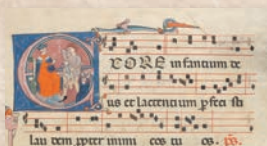 EX ORE infantium de
us et lactencium pfeci sti
lau dem ppter inimi cos tu os. ps.